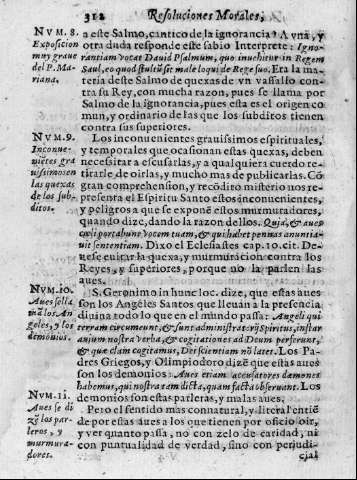 312 Resoluciones Morales,
NVM. 8.
Exposicion
muy graue
del P. Ma-
riana.
a este Salmo, cantico de la ignorancia? A vna, y
otra duda responde este sabio Interprete: Igno-
rantiam vocat Dauid Psalmum, quo inuehitur in Regem
Saul, eo quod stultũ sit male loqui de Rege suo. Era la ma-
teria deste Salmo de quexas de vn vassallo con-
tra su Rey, con mucha razon, pues se llama por
Salmo de la ignorancia, pues esta es el origen co
mun, y ordinario de las que los subditos tienen
contra sus superiores.
NVM. 9.
Inconue-
niẽtes gra
uissimos en
las quexas
de los sub-
ditos.
Los inconuenientes grauissimos espirituales,
y temporales que ocasionan estas quexas, deben
necesitar a escusarlas, y a qualquiera cuerdo re-
tirarle de oirlas, y mucho mas de publicarlas. Cõ
gran comprehension, y recõdito misterio nos re-
presenta el Espiritu Santo estos inconuenientes,
y peligros a que se exponẽ estos murmuradores,
quando dize, dando la razon dellos. Quia, & aues
cœli portabunt vocem tuam, & qui habet pennas annuntia-
uit sententiam. Dixo el Eclesiastes cap. 10. cit. De-
uese euitar la quexa, y murmuracion contra los
Reyes, y superiores, porque no la parlen las
aues.
NVM. 10.
Aues sõ lla
mã los An
goles, y los
demonios.
S. Geronimo in hunc loc. dize, que estas aues
son los Angeles Santos que lleuãn a la presencia
diuina todo lo que en el mundo passa: Angeli qui
terram circumeunt, & sunt administratorij Spiritus, instar
auium nostra verba, & cogitationes ad Deum perferunt,
& quæ clam cogitamus, Dei scientiam nõ latet. Los Pa-
dres Griegos, y Olimpiodoro dizẽ que estas aues
son los demonios: Aues etiam accusatores dæmones
habemus, qui nostra tam dicta, quam facta obseruant. Los
demonios son estas parleras, y malas aues.
NVM. 11.
Aues se di
zẽ los par-
leros, y
murmura-
dores.
Pero el sentido mas connatural, y literal entiẽ
de por estas aues a los que tienen por oficio oir,
y ver quanto passa, no con zelo de caridad, ni
con puntualidad de verdad, sino con perjudi-
cial